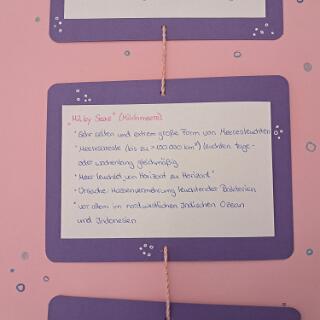 "Milky Seas" (Milchmeere)
* Sehr selten und extrem große Form von Meeresleuchten
* Meeresareale (bis zu >100 000 km²) leuchten tage-
oder wochenlang gleichmäßig
* Meer leuchtet von Horizont zu Horizont"
* Ursache: Massenvermehrung leuchtender Bakterien
* vor allem im nordwestlichen Indischen Ozean
und Indonesien